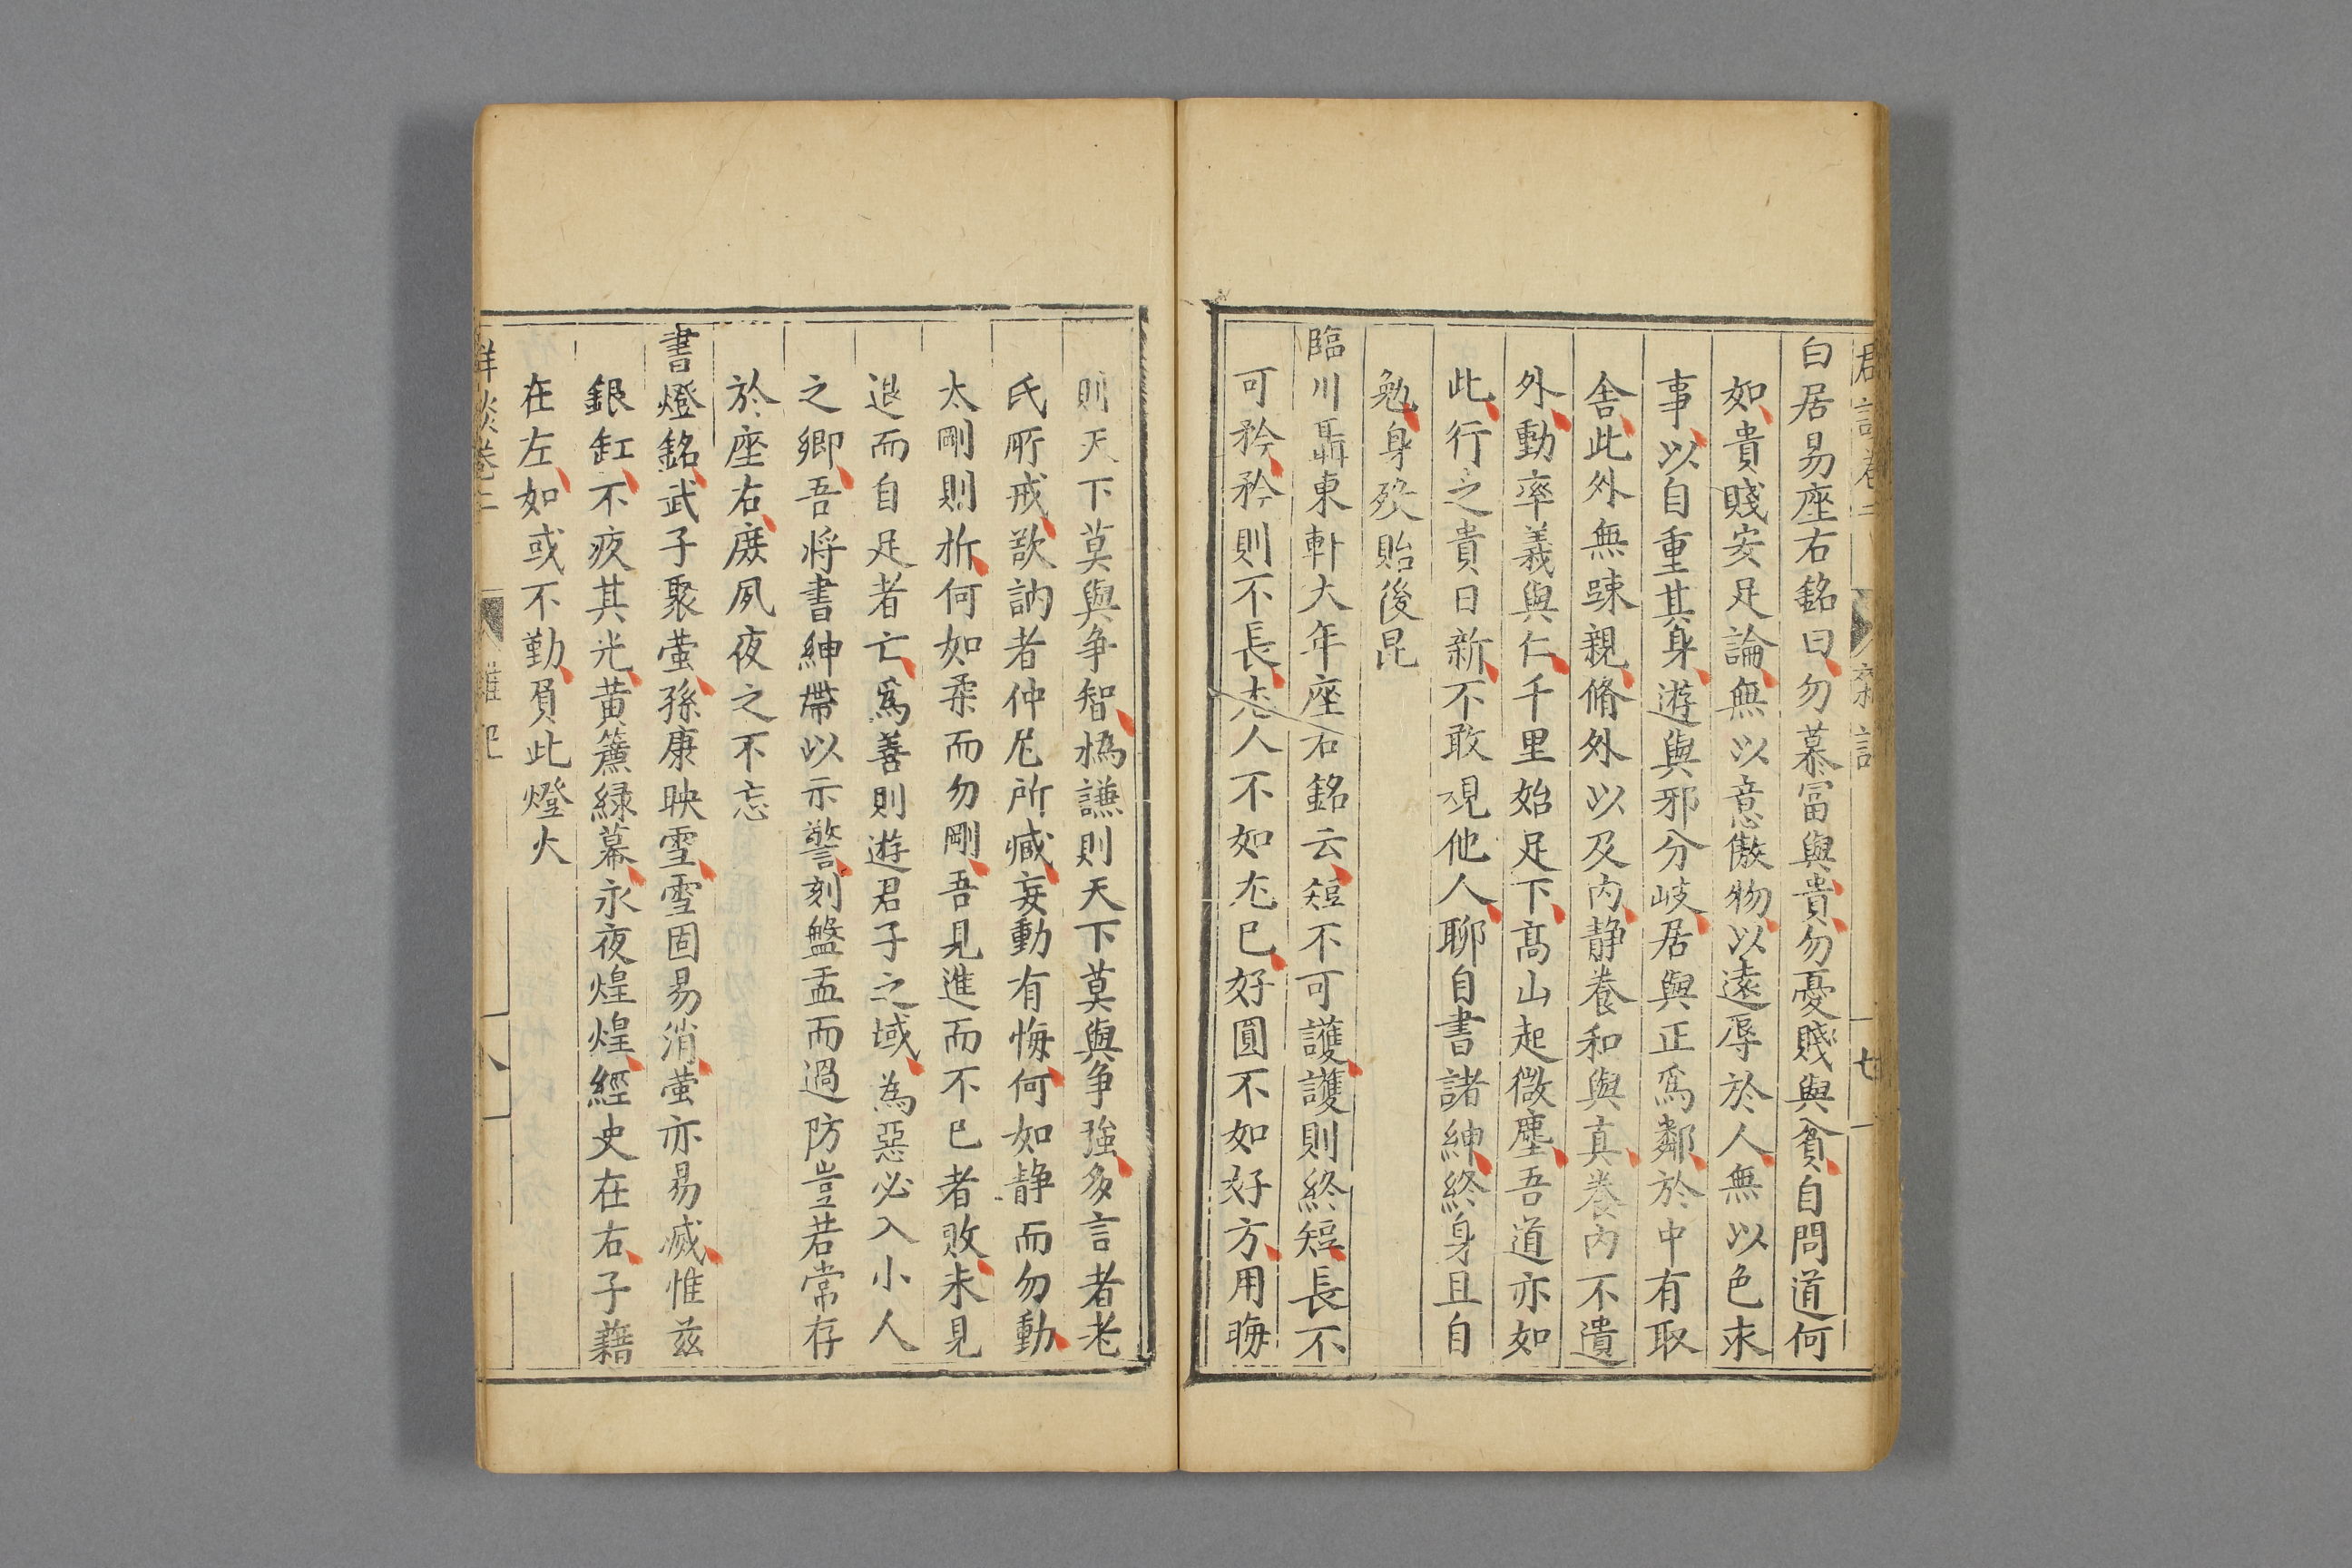 白居易座右銘曰勿慕冨與貴勿憂賤與貧自問道何
如貴賤安足論無以意傲物以遠辱於人無以色求
事以自重其身遊與邪分岐居與正爲鄰於中有取
舍此外無踈親脩外以及内静養和與真養内不遺
外動率義與仁千里始足下髙山起微塵吾道亦如
此行之貴日新不敢規他人聊自書諸紳終身且自
勉身歿貽後昆
臨川聶東軒大年座右銘云短不可護護則終短長不
可矜矜則不長尤人不如尤已好圓不如好方用晦
則天下莫與争智撝謙則天下莫與争強多言者老
氏所戒欲訥者仲尼所臧妄動有悔何如静而勿動
太剛則折何如柔而勿剛吾見進而不已者敗未見
退而自足者亡爲善則遊君子之域為惡必入小人
之鄉吾將書紳帶以示警刻盤盂而過防豈若常存
於座右庻夙夜之不忘
書燈銘武子聚螢孫康映雪雪固易消螢亦易滅惟兹
銀缸不疲其光黄簾緑幕永夜煌煌經史在右子藉
在左如或不勤負此燈火